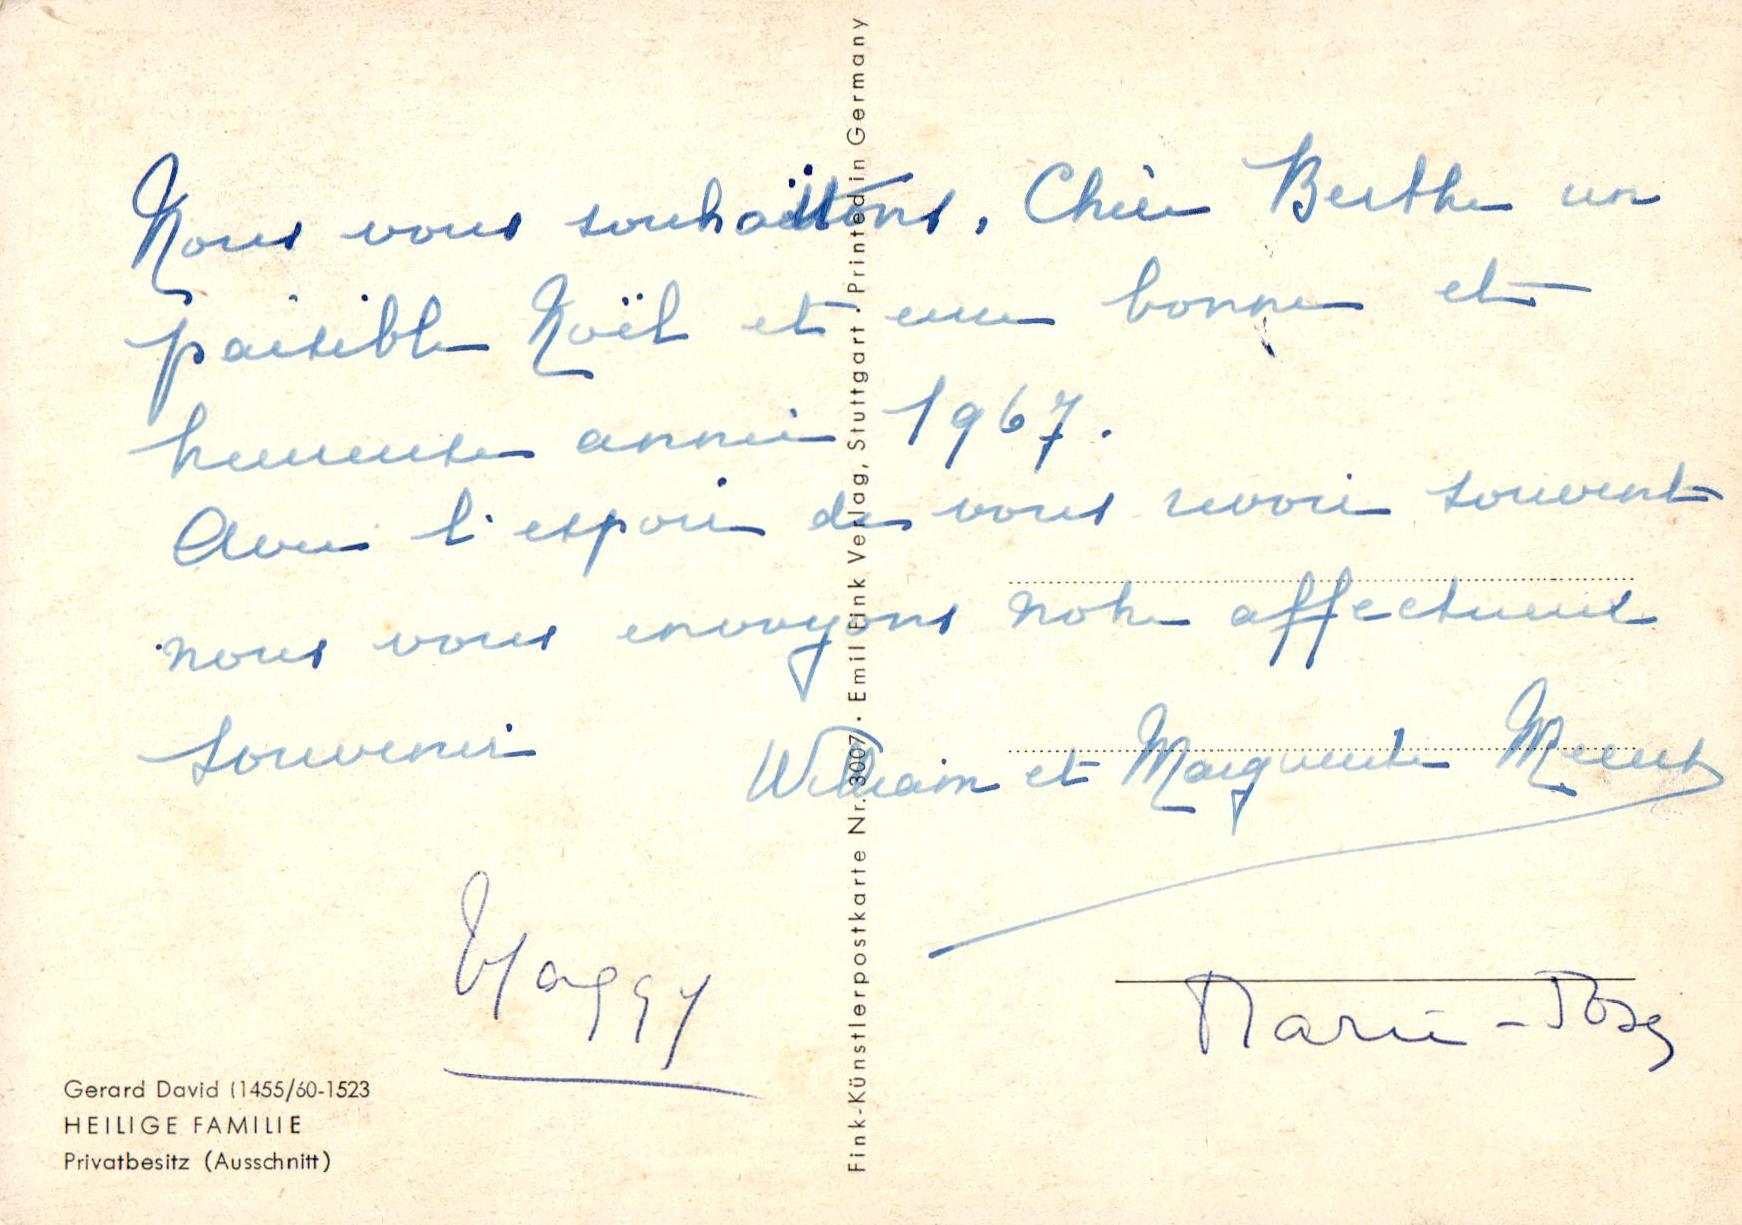 Nous vous souhaitons, Chère Berthe un
paisible Noël et une bonne et
heureuse année 1967.
Avec l'espoir de vous revoir souvent
nous vous envoyons notre affectueux
souvenir
William et Marguerite
Maggy
Marie-José
Gerard David (1455/60-1523
HEILIGE FAMILIE
Privatbesitz (Ausschnitt)
Fink-Künstlerpostkarte Nr. 3007 • Emil Fink Verlag, Stuttgart • Printed in Germany